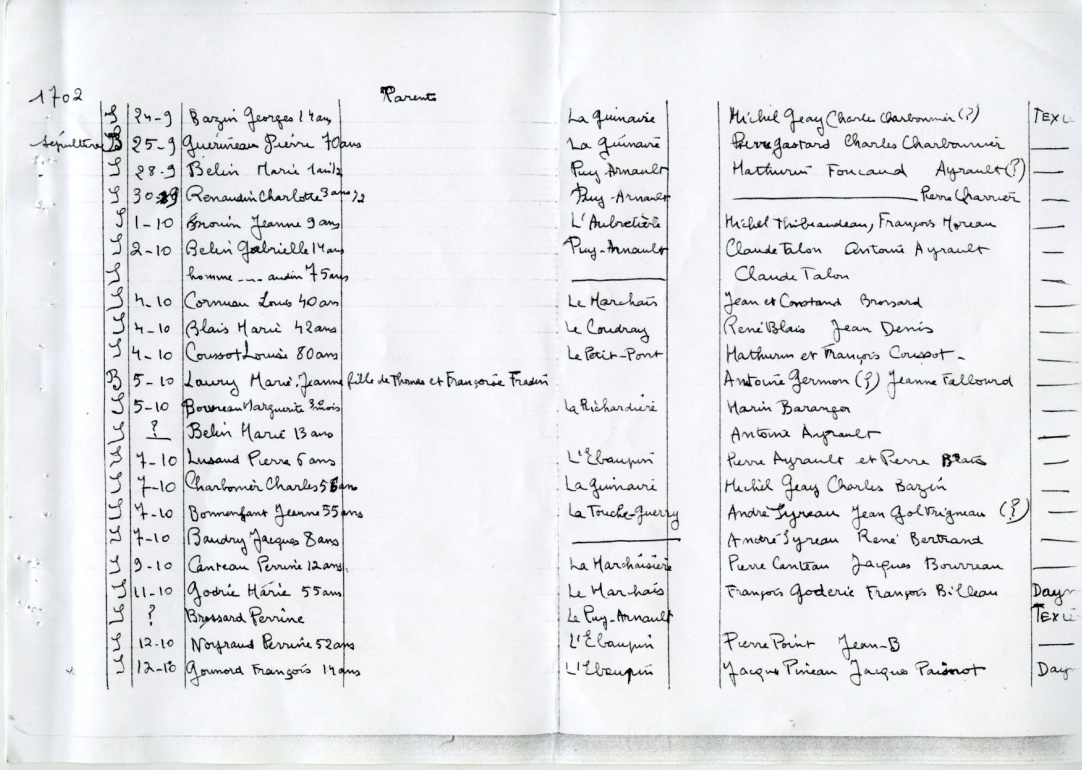 1702 Parents
S 24-9 Bazin Georges 14 ans La Guinaire Michel Geay Charles Charbonnier (?)
sépulture B 25-9 Guérineau Pierre 70 ans La Guinaire Pierre Gastard Charles Charbonnier —
S 28-9 Belin Marie 1 an 1/2 Puy-Arnault Mathurin Foucaud Ayrault (?) —
S 30-9 Renaudin Charlotte 3 ans 1/2 Puy-Arnault — Pierre Charrier —
S 1-10 Jeanne 9 ans L'Aubretière Michel Thibeaudeau, François Moreau —
S 2-10 Belin Gabrielle 14 ans Puy-Arnault Claude Talon Antoine Ayrault —
S homme ---- audin 75 ans — Claude Talon —
S 4-10 Cornuau Louis 40 ans Le Marchais Jean et Constand Brossard —
S 4-10 Blais Marie 42 ans Le Coudray René Blais Jean Denis —
S 4-10 Coussot Louise 80 ans Le Petit-Pont Mathurin et François Coussot - —
B 5-10 Laury Marie, Jeanne fille de Thomas et Françoise Antoine Germon (?) Jeanne Fallourd —
S 5-10 Marguerite La Richardière Marin Baranger —
S ? Belin Marie 13 ans Antoine Ayrault —
S 7-10 Lusaud Pierre 6 ans L'Ebaupin Pierre Ayrault et Pierre —
S 7-10 Charbonier Charles ans La Guinaire Michel Geay Charles Bazin —
S 7-10 Bonnenfant Jeanne 55 ans La Touche-Guerry André Syreau Jean (?) —
S 7-10 Baudry Jacques 8 ans — André Syreau René Bertrand —
S 9-10 Canteau Perrine 12 ans La Marchaisière Pierre Canteau Jacques Bourreau —
S 11-10 Godrie Marie 55 ans Le Marchais François Goderie François Billeau
S ? Brossard Perrine Le Puy-Arnault
S 12-10 Perrine 52 ans L'Ebaupin Pierre Point Jean-B —
S 12-10 Gournord François 14 ans L'Ebaupin Jacques Pineau Jacques